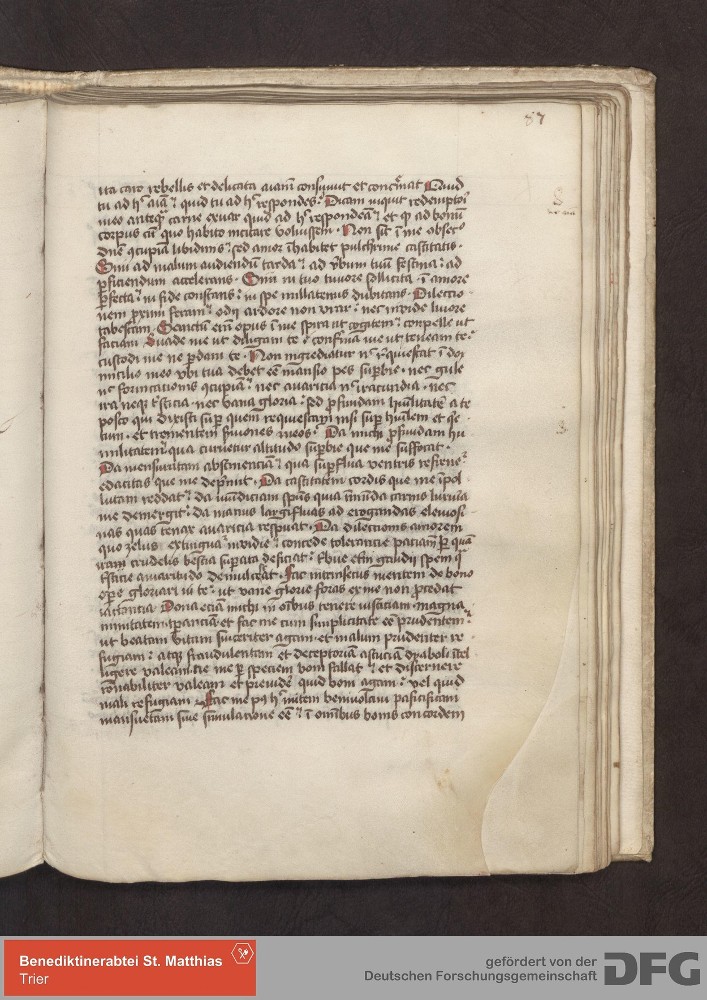 87
ita caro rebellis et delicata aīam consumit et
tu ad hᵉ aīa ? quid tu ad hᵉ respondes ? Dicam inquit redemptori
meo anteqᵃ carne exuar quid ad hᵉ respondeā ? et ad bonū
corpus cū quo habito incitare voluissem . Non sūt ī me obser
ꝯcupiam libidinis ? sed amor īhabitet pulcherrime castitatis .
Sim ad malum audiendū tarda ? ad vbum tuū festina ? ad
ꝑficiendum accelerans . Sim in tuo timore sollicita ī amore
ꝑfecta ? in fide constans ? in spe nullatenus dubitans . Dilectio
nem proximi feram ? odii ardore non vrar ? nec invidie livore
tabescam . Sanctum opus ī me spira ut cogitem ? conpelle ut
faciam Suade me ut diligam te ? confirma me ut teneam te ?
custodi me ne ꝑdam te . Non ingrediatur requiescat ī do
micilio meo vbi tua debet eē mansio pes suꝑbie . nec gule
fornicationis ꝯcupiā ? nec avaricia iracundia . nec
ira neqᵉ tsticia . nec vana gloria ? sed ꝓfundam huīlitatē a te
posco qui dixisti suꝑ quem requiescam nisi suꝑ huīlem et qe
tum . et trementem sermones meos ? Da michi ꝓfundam hu
militatem qua curvetur altitudo suꝑbie que me suffocat .
Da mensuratam abstinenciam ? qua suꝑflua ventris refrenet
edacitas que me depmit . Da castitatem cordis que me īpol
lutam reddat ? da mūdiciam spūs quia īmūda carnis luxuria
me demergit ? da manus largifluas ad erogandas elemosi
nas quas tenax avaricia respuat . Da dilectionis amorem
quo zelus extinguat invidie ? concede tolerancie paciam ꝑ quā
crudelis bestia suꝑata deficiat ? tbue gaudii spem
tsticie amaritudo demulceat . Fac intrinsecus mentem de bono
oꝑe gloriari in te ? ut vane glorie foras ex me non ꝓcedat
iactancia Dona eciā michi in oībus tenere iusticiam . magna
nimitatem tꝑanciā et fac me cum simplicitate eē prudentem ?
ut beatam vitam sinceriter agam . et malum prudenter re
fugiam ? atqᵉ fraudulentam et deceptoriā astuciam dyaboli ītel
ligere valeam . ne me ꝑ speciem boni fallat ? et discernere
racionabiliter valeam et previdere quid boni agam ? vel quid
mali refugiam . Fac me mitem benivolam pacificam
mansuetam sine simulatione eē ? ī omībus bonis concordem
Benediktinerabtei St. Matthias
Trier
gefördert von der
Deutschen Forschungsgemeinschaft
DFG